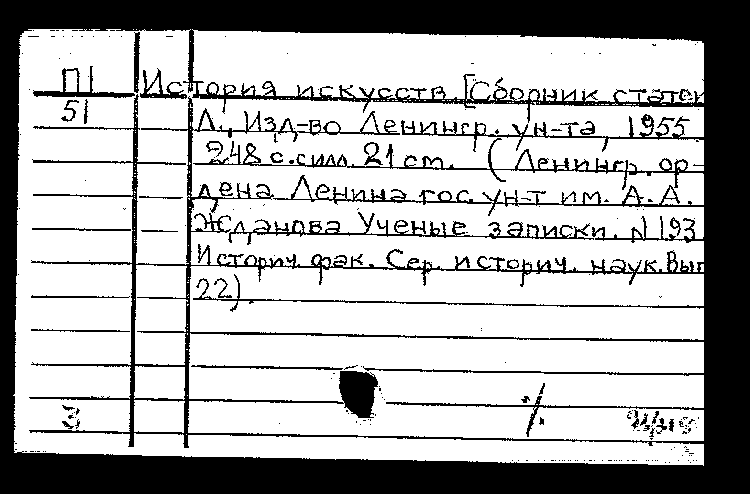 П1 История искусств. [Сборник статей
51 Л., Изд-во Ленингр. ун-та, 1955
248 с. с илл. 21 см. (Ленингр. ор-
дена Ленина гос. ун-т им. А. А.
Жданова Ученые записки. N 193
Историч. фак. Сер. историч. наук. Вып
22).
3